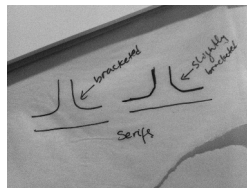 bracketed
slightly
bracketed
serifs